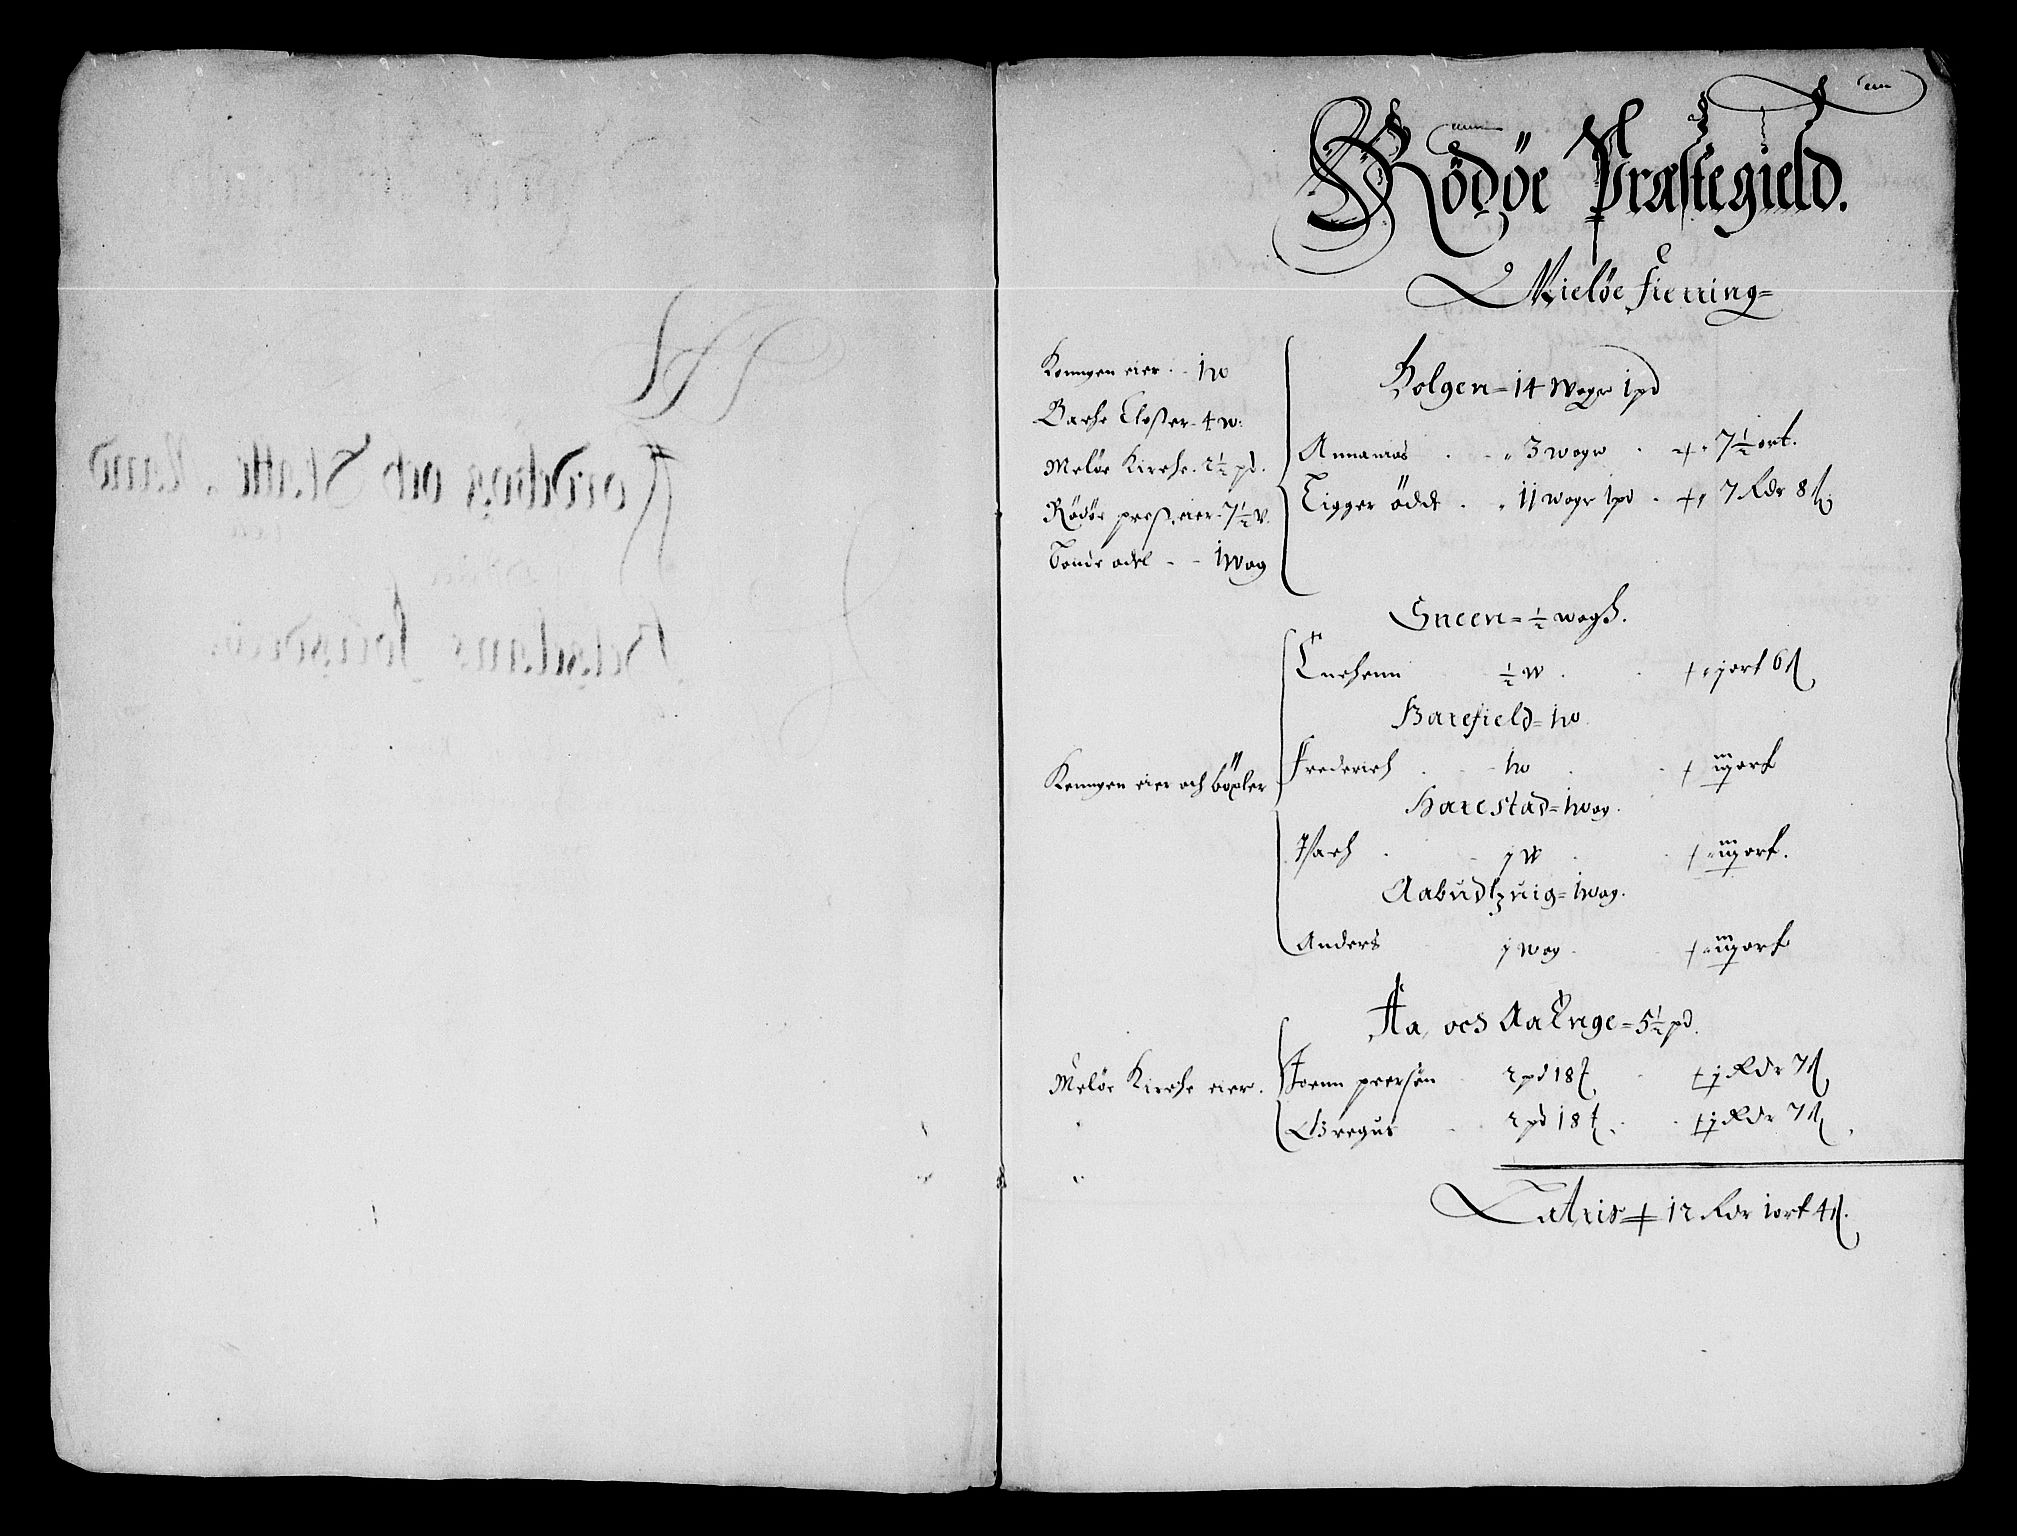 Rödöe Præstegield.
Mielöe Fierring=
Kongen eier - 1w
Barche Closter - 4 w:
Melöe Kirche - 2½ pd.
Rödöe prest eier - 7½ w.
Bonde odel - - 1 Wog
Bolgen = 14 Woger 1 pd
Annanias - - 3 woger - 7½ ort.
Ligger ödde - 11 woger 1 pd - 7 Rdr 8 ß
Sneen = ½ wogh.
½ w - j ort 6 ß
Barefield = 1w
Kongen eier och böxler
Frederich - 1w - iij ort
Harestad = 1 wog.
Isach - j W - iij ort.
= 1 wog.
Anders j wog - iij ort
Aa och Aa Enge = 5½ pd.
Melöe Kirche eier.
Joenn peersön - 2 pd 18 - j Rdr 7 ß
Gregus - 2 pd 18 - j Rdr 7 ß
Lateris 12 Rdr 1 ort 4 ß.